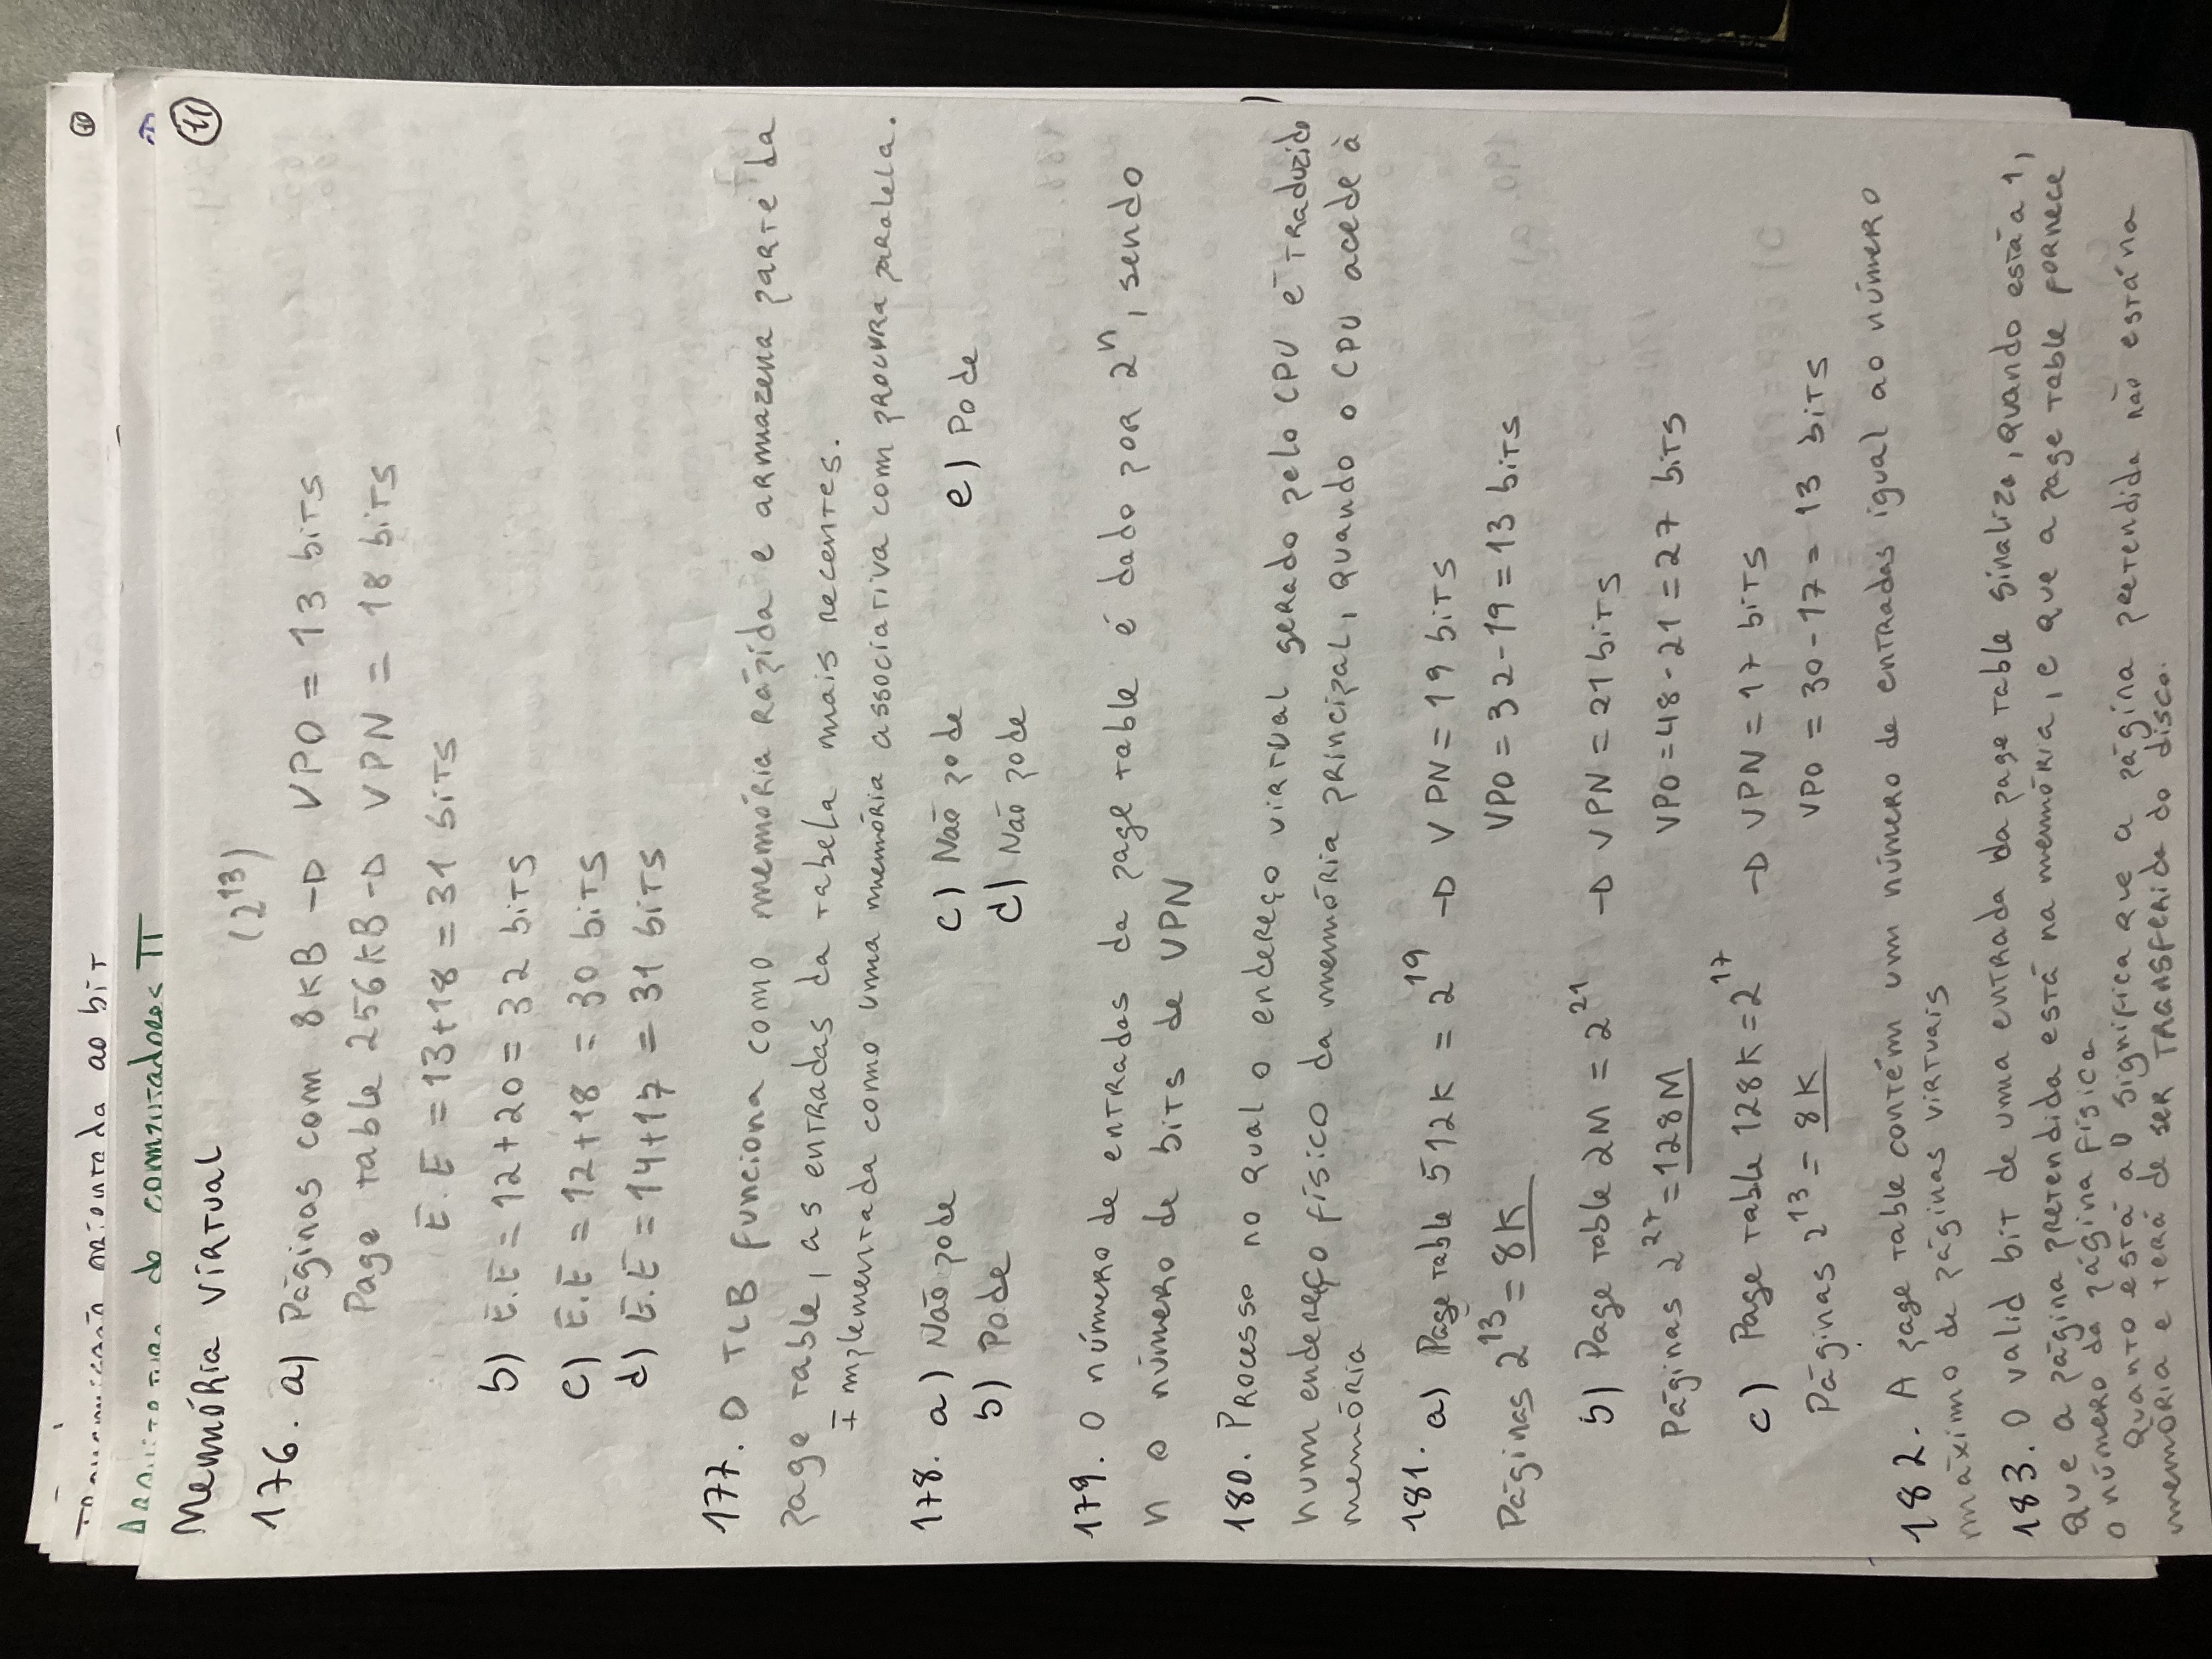 Transmissão orientada ao bit
10
Arquitetura de computadores II
Memória virtual
11
(2^13)
176. a) Páginas com 8KB → VPO = 13 bits
Page table 256KB → VPN = 18 bits
E.E = 13+18 = 31 bits
b) E.E = 12+20 = 32 bits
c) E.E = 12+18 = 30 bits
d) E.E = 14+17 = 31 bits
177. O TLB funciona como memória rápida e armazena parte da
page table, as entradas da tabela mais recentes.
Implementada como uma memória associativa com procura paralela.
178. a) Não pode c) Não pode e) Pode
b) Pode d) Não pode
179. O número de entradas da page table é dado por 2^n, sendo
n o número de bits de VPN
180. Processo no qual o endereço virtual gerado pelo CPU é traduzido
num endereço físico da memória principal, quando o CPU acede à
memória
181. a) Page table 512K = 2^19 → VPN = 19 bits
Páginas 2^13 = 8K VPO = 32-19 = 13 bits
b) Page table 2M = 2^21 → VPN = 21 bits
Páginas 2^27 = 128M VPO = 48-21 = 27 bits
c) Page table 128K = 2^17 → VPN = 17 bits
Páginas 2^13 = 8K VPO = 30-17 = 13 bits
182. A page table contém um número de entradas igual ao número
máximo de páginas virtuais
183. O valid bit de uma entrada da page table sinaliza, quando está a 1,
que a página pretendida está na memória, e que a page table fornece
o número da página física
Quanto está a 0 significa que a página pretendida não está na
memória e terá de ser transferida do disco.